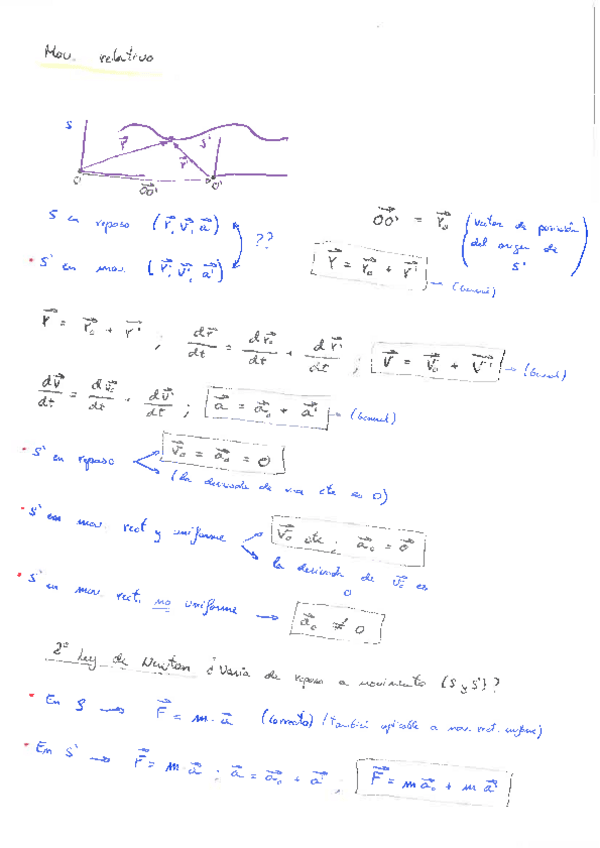 Mov. relativo
S
r⃗
S'
r⃗'
O
OO'
O'
S en reposo (r⃗, v⃗, a⃗)
??
• S' en mov. (r⃗', v⃗', a⃗')
OO' = r⃗₀ (vector de posición del origen de S')
r⃗ = r⃗₀ + r⃗' → (General)
r⃗ = r⃗₀ + r⃗' ; dr⃗/dt = dr⃗₀/dt + dr⃗'/dt ; v⃗ = v⃗₀ + v⃗' → (General)
dv⃗/dt = dv⃗₀/dt + dv⃗'/dt ; a⃗ = a⃗₀ + a⃗' → (General)
• S' en reposo v⃗₀ = a⃗₀ = 0
(la derivada de una cte es 0)
• S' en mov. rect y uniforme v⃗₀ cte ; a⃗₀ = 0⃗
la derivada de v⃗₀ es 0
• S' en mov. rect. no uniforme → a⃗₀ ≠ 0
2ª Ley de Newton ¿Varía de reposo a movimiento (S y S')?
• En S → F⃗ = m · a⃗ (correcto) (también aplicable a mov. rect. uniforme)
• En S' → F⃗ = m · a⃗ ; a⃗ = a⃗₀ + a⃗' ; F⃗ = m a⃗₀ + m a⃗'